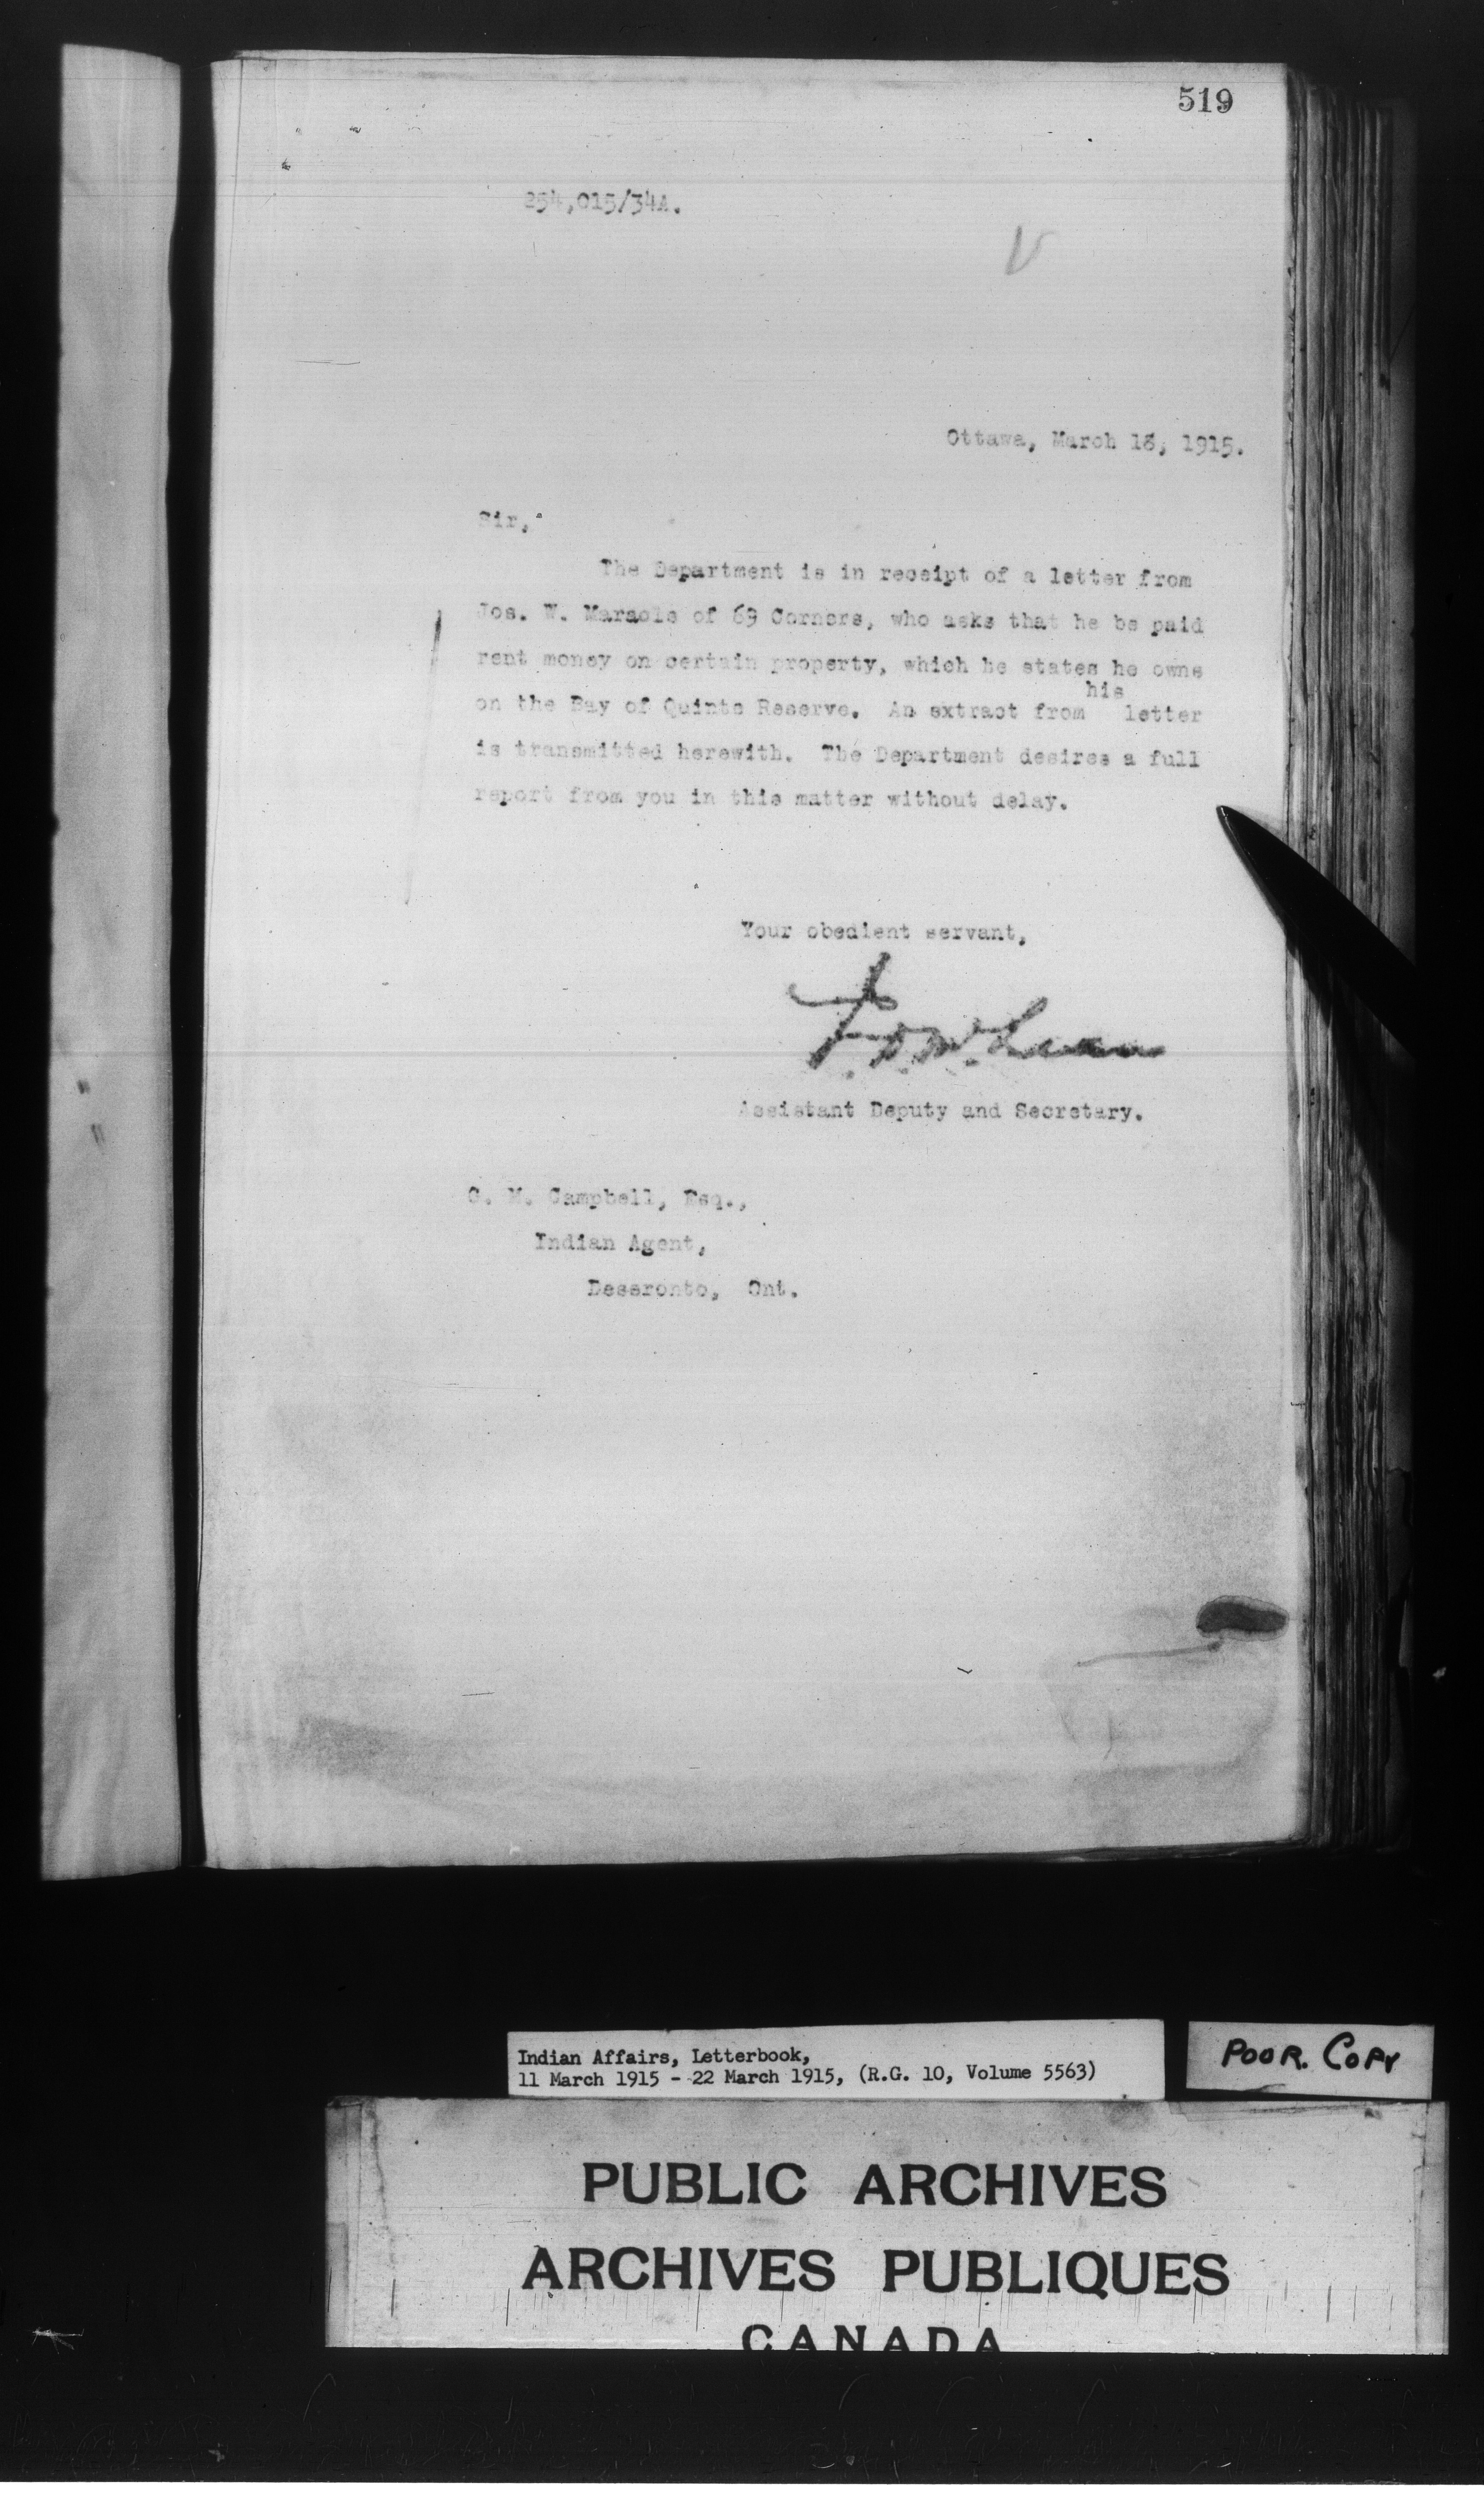 519
254,015/34A.
Ottawa, March 18, 1915.
Sir,
The Department is in receipt of a letter from
Jos. W. Maracle of 69 Corners, who asks that he be paid
rent money on certain property, which he states he owns
his
on the Bay of Quinte Reserve. An extract from letter
is transmitted herewith. The Department desires a full
report from you in this matter without delay.
Your obedient servant,
Assistant Deputy and Secretary.
G. M. Campbell, Esq.,
Indian Agent,
Deseronto, Ont.
Indian Affairs, Letterbook,
11 March 1915 - 22 March 1915, (R.G. 10, Volume 5563)
POOR. COPY
PUBLIC ARCHIVES
ARCHIVES PUBLIQUES
CANADA